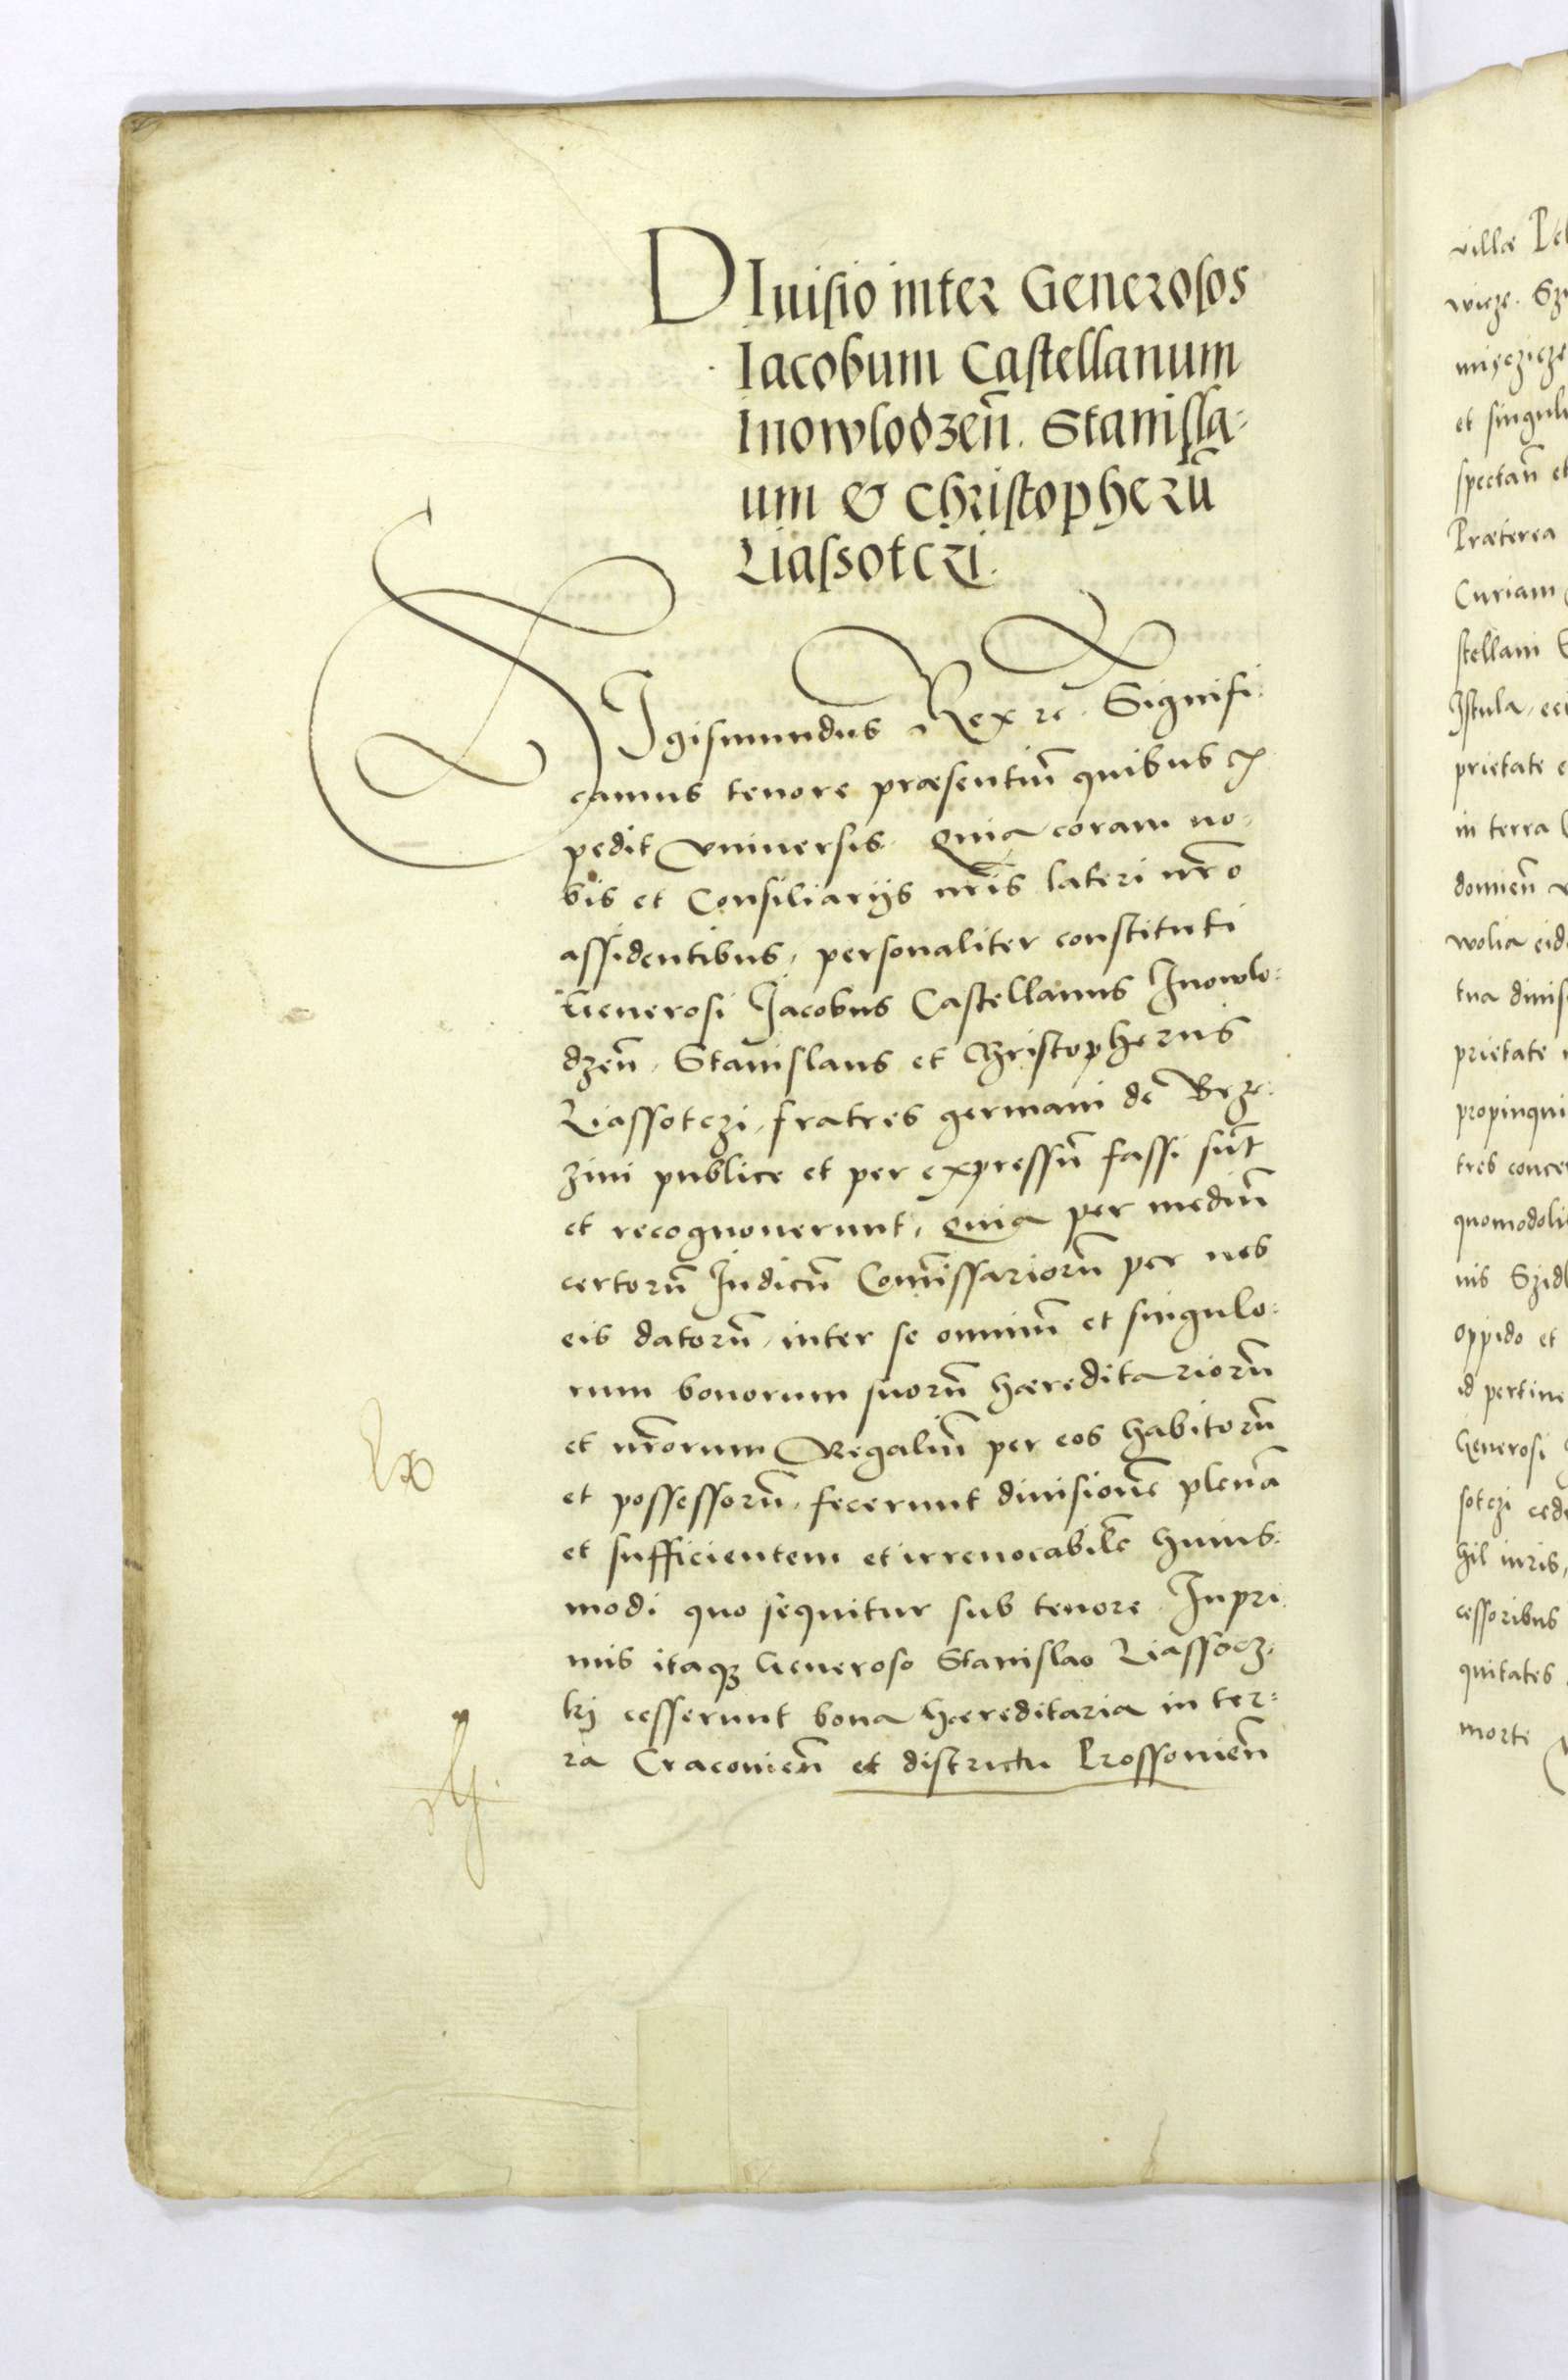 DIuisio inter Generosos
Iacobum Castellanum
Inowlodzeñ. Stanisla-
um & Christopherũ
Liassotczi.
SIgismundus Rex rc̃. Signifi-
camus tenore præsentiũ quibus ex
pedit vniuersis. Quia coram no-
bis et Consiliarijs nr̃is lateri nr̃o
assidentibus, personaliter constituti
Generosi Jacobus Castellanus Inowlo-
dzeñ, Stanislaus et Christopherus
Liassotczi, fratres germani de Brze-
zini publice et per expressũ fassi sũt
et recognouerunt, Quia per mediũ
certorũ Iudicũ Com̃issariorũ per nos
eis datorũ, inter se omniũ et singulo-
rum bonorum suorũ hæreditariorũ
et nr̃orum Regaliũ per eos habitorũ
et possessorũ, fecerunt diuisionẽ plenã
et sufficientem et irreuocabilẽ huius-
modi quo sequitur sub tenore. Inpri-
mis itaqꝫ Generoso Stanislao Liassocz-
ki cesserunt bona hæreditaria in ter-
ra Cracouieñ et districtu Prossouieñ
villæ
wicze.
et singul
spectañ et
Præterea
Curiam
stellani
Istula,
prietate
in terra
domieñ
wolia eid
tua diuis
prietate
propinqui
tres conce
quomodoli
nis Szidl
oppido et
id pertine
Generosi
sotczi cede
hil iuris,
cessoribus
quitates
morte